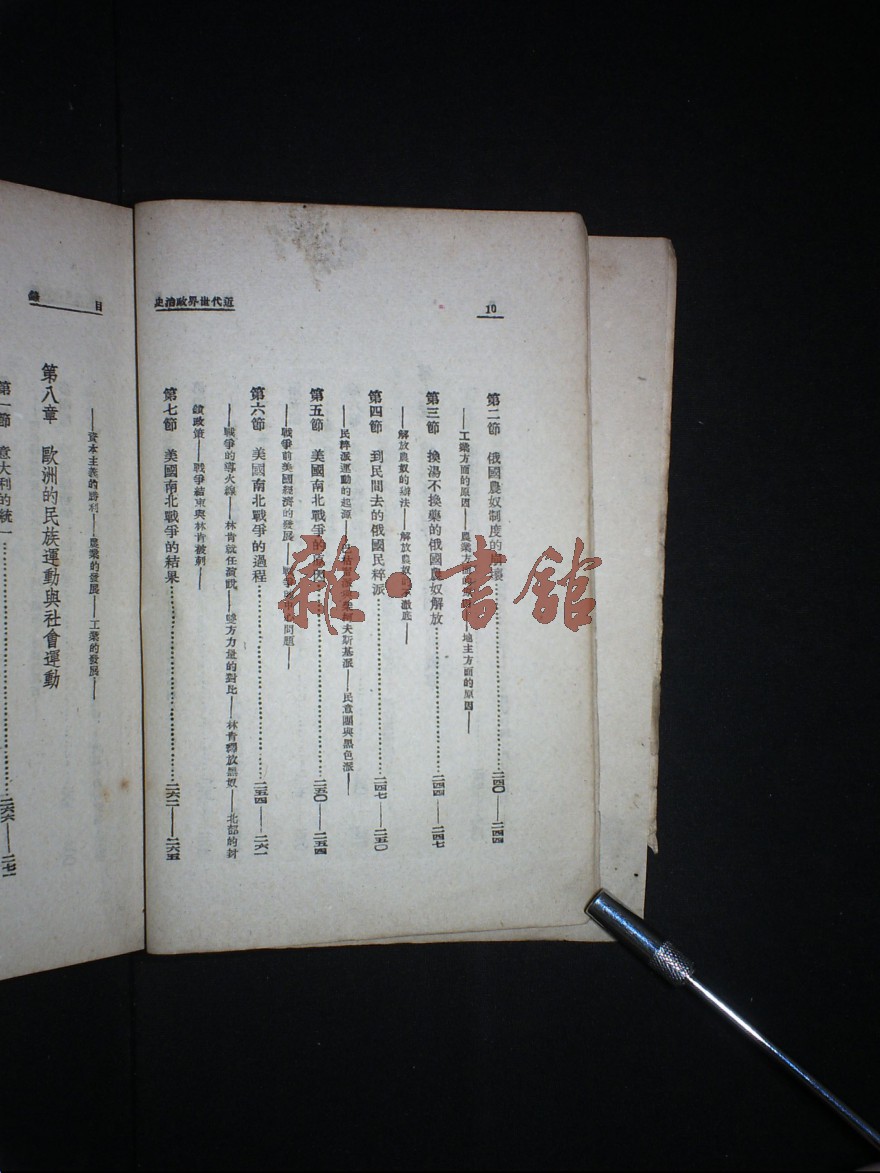 近代世界政治史
10
第二節 俄國農奴制度的崩壞 二四〇——二四四
——工業方面的原因——農業方面的原因——地主方面的原因——
第三節 換湯不換藥的俄國農奴解放 二四四——二四七
——解放農奴的辦法——解放農奴的不澈底——
第四節 到民間去的俄國民粹派 二四七——二五〇
——民粹派運動的起源——夫斯基派——民意團與黑色派——
第五節 美國南北戰爭的原因 二五〇——二五四
——戰爭前美國經濟的發展——戰爭的中心問題——
第六節 美國南北戰爭的過程 二五四——二六一
——戰爭的導火線——林肯就任演說——雙方力量的對比——林肯釋放黑奴——北部的封
鎖政策——戰爭結束與林肯被刺——
第七節 美國南北戰爭的結果 二六二——二六五
目錄
——資本主義的勝利——農業的發展——工業的發展——
第八章 歐洲的民族運動與社會運動
第一節 意大利的統一 二六六——二七一
雜·書館